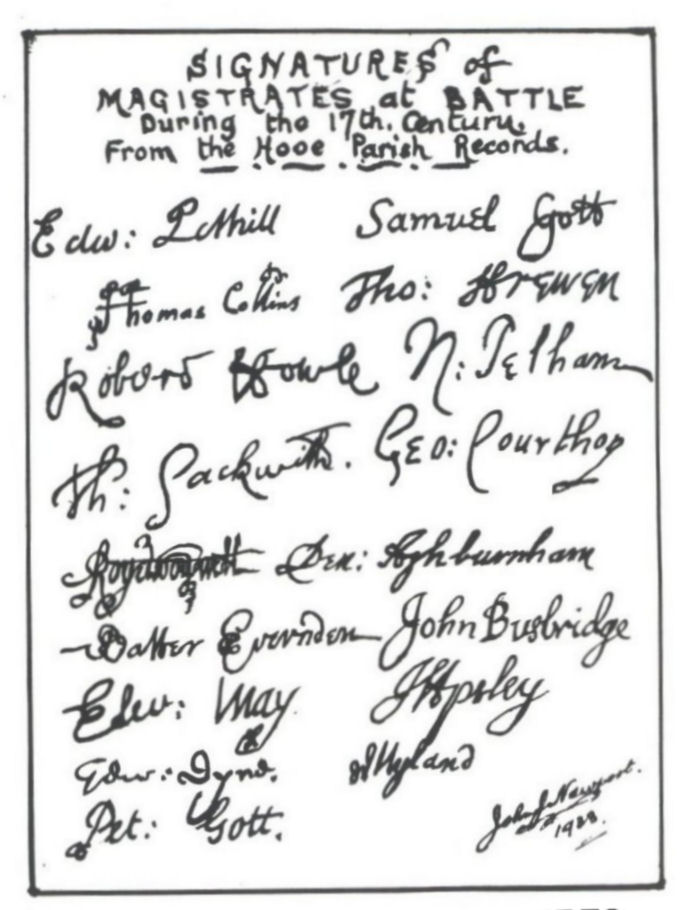 SIGNATURES of
MAGISTRATES at BATTLE
During the 17th. Century.
From the Hooe Parish Records.
Edw: Samuel Gott
Thomas Collins Tho: Frewen
Robert Fowle N: Pelham
Th: Sackvill. Geo: Courthop
Den: Ashburnham
Evernden John Busbridge
Edw: May JApsley
Edw: Dyne. Wyland
Pet: Gott. John J Newport.
1928.